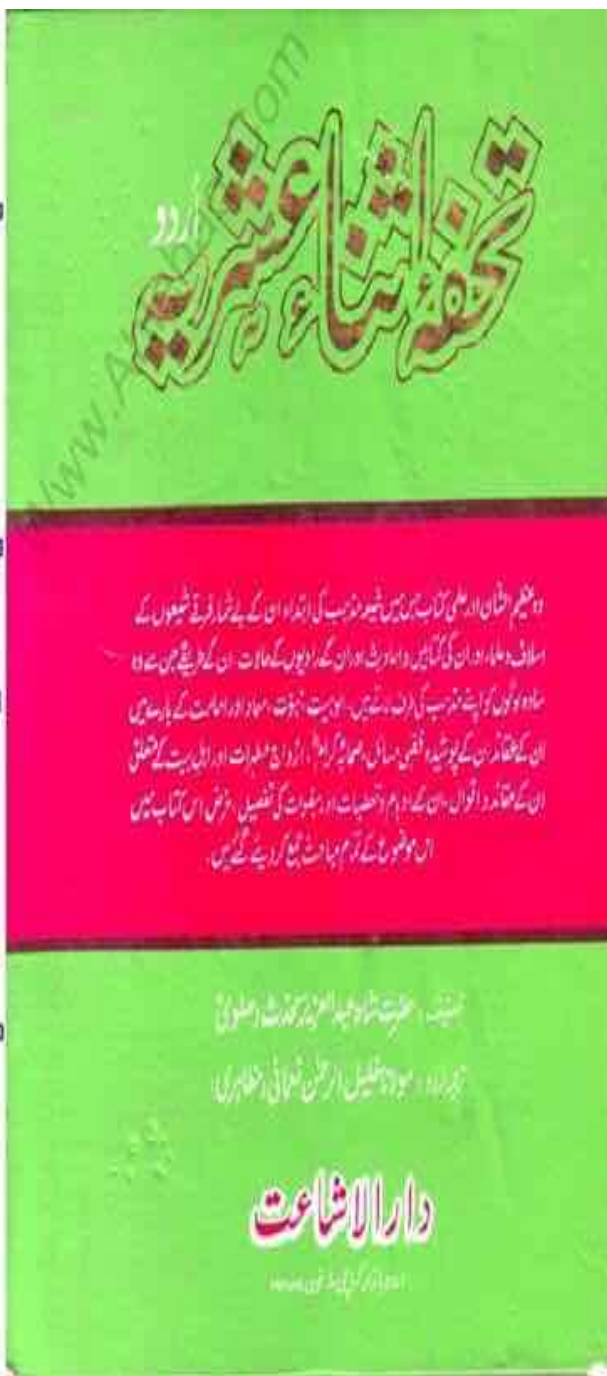 تحفۂ اثناء عشریہ
اردو
وہ عظیم الشان اور علمی کتاب جس میں شیعہ مذہب کی ابتداء ان کے بے شمار فرقے شیعوں کے
اسلاف و علماء اور ان کی کتابیں و احادیث اور ان کے راویوں کے حالات، ان کے طریقے جن سے وہ
سادہ لوحوں کو اپنے مذہب کی طرف لاتے ہیں، الوہیت، نبوت، معاد اور امامت کے بارے میں
ان کے عقائد، ان کے پوشیدہ فقہی مسائل، صحابہ کرامؓ، ازواج مطہرات اور اہل بیت کے متعلق
ان کے عقائد و اقوال، ان کے اوہام، تعصبات اور ہفوات کی تفصیل، غرض اس کتاب میں
اس موضوع کے تمام مباحث جمع کر دیے گئے ہیں۔
تصنیف : حضرت شاہ عبدالعزیز محدث دہلویؒ
ترجمہ اردو : مولانا خلیل الرحمٰن نعمانی (مظاہری)
دارالاشاعت
www.A
com